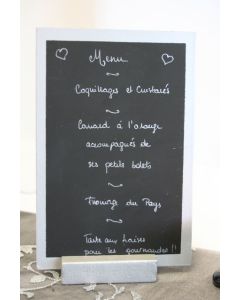 Menu
Coquillages et Crustacés
Canard à l'orange
accompagnés de
ses petits bolets
Fromage du Pays
Tarte aux fraises
pour les gourmandes !!